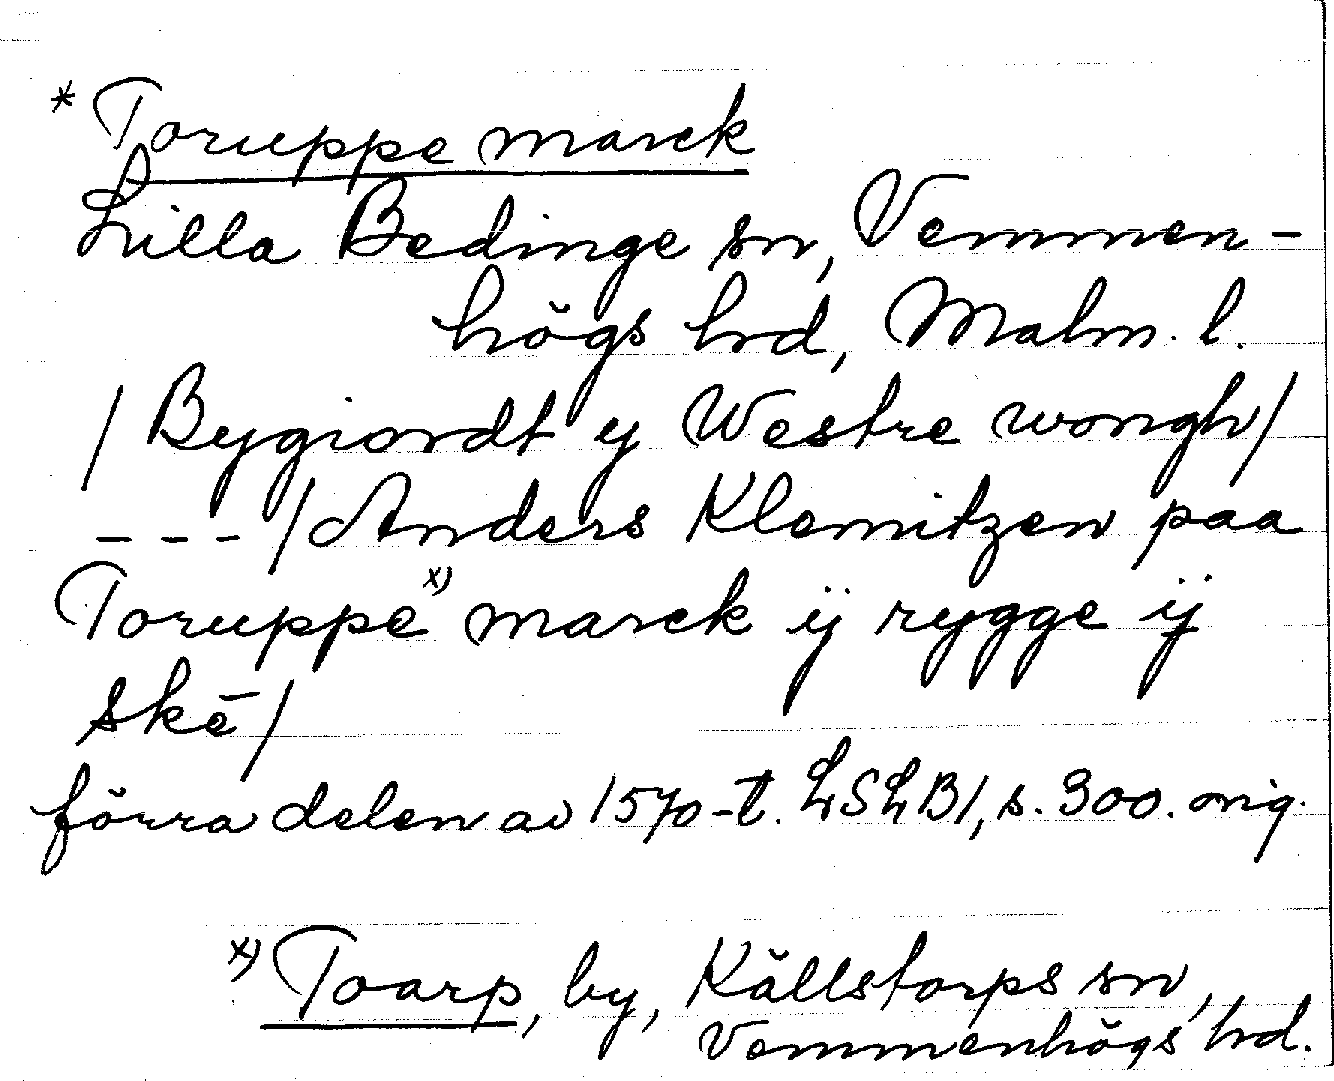 * Toruppe marck
Lilla Bedinge sn, Vemmen-
högs hrd, Malm. l.
/Bygiordt y Westre wongh/
---/Anders Klemitzen paa
Toruppe x) marck ij rygge ij
skē/
förra delen av 1570-t. LSLB1, s. 300. orig.
x) Toarp, by, Källstorps sn,
Vemmenhögs hrd.